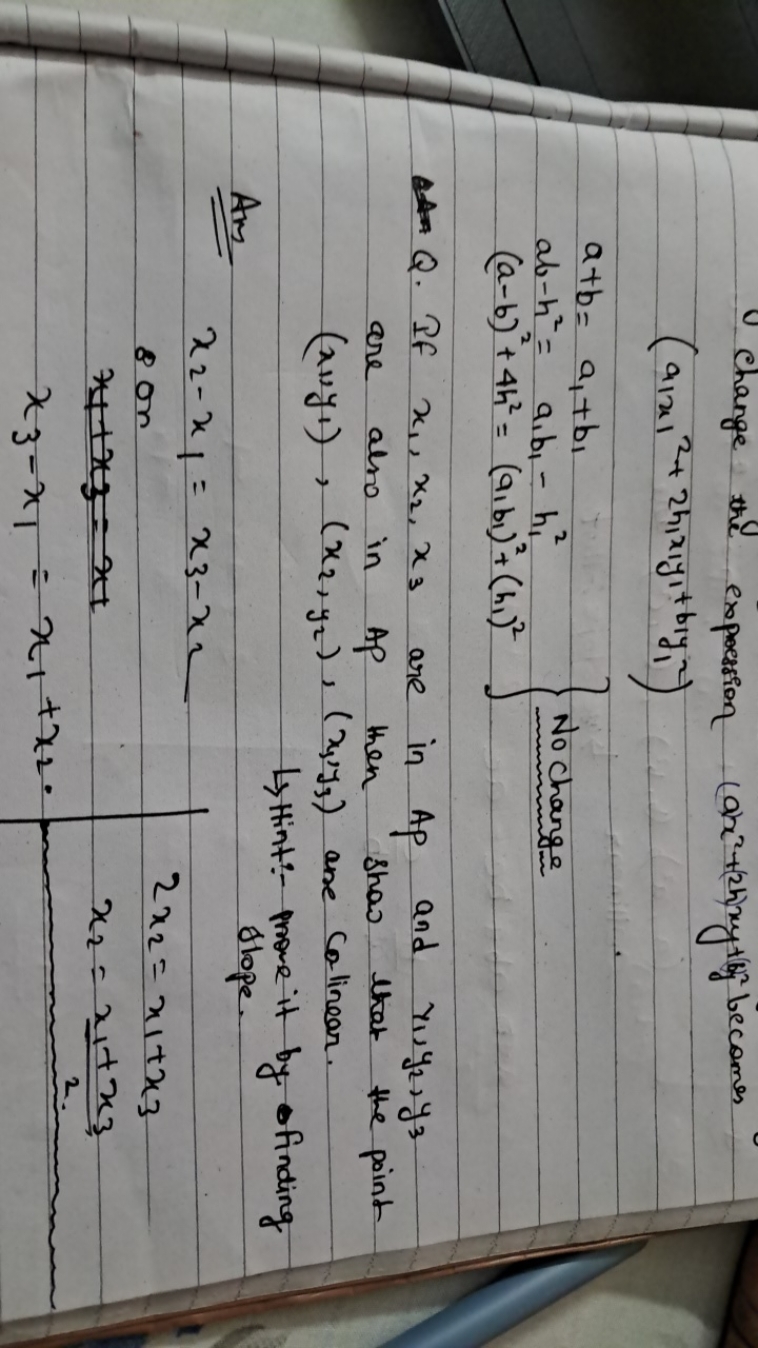 change the expression (ax²+(2h)xy+by² becomes
(a₁x₁²+2h₁x₁y₁+b₁y₁²)
a+b= a₁+b₁
ab-h² = a₁b₁-h₁²
(a-b)²+4h² = (a₁b₁)²+(h₁)²
No change
Q. If x₁, x₂, x₃ are in Ap and Y₁,y₂,y₃
are also in Ap then show that the point
(x₁,y₁), (x₂,y₂), (x₁,y₃) are Colinear.
↳Hint:- prove it by finding
slope.
Ans
x₂-x₁ = x₃-x₂
or
x₁+x₃=x₁
x₃-x₁ = x₁+x₂.
2x₂ = x₁+x₃
x₂ = x₁+x₃
2.